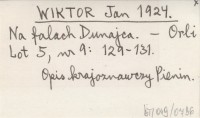 WIKTOR Jan 1924.
Na falach Dunajca. – Orli
Lot 5, nr 9: 129-131.
Opis krajoznawczy Pienin.